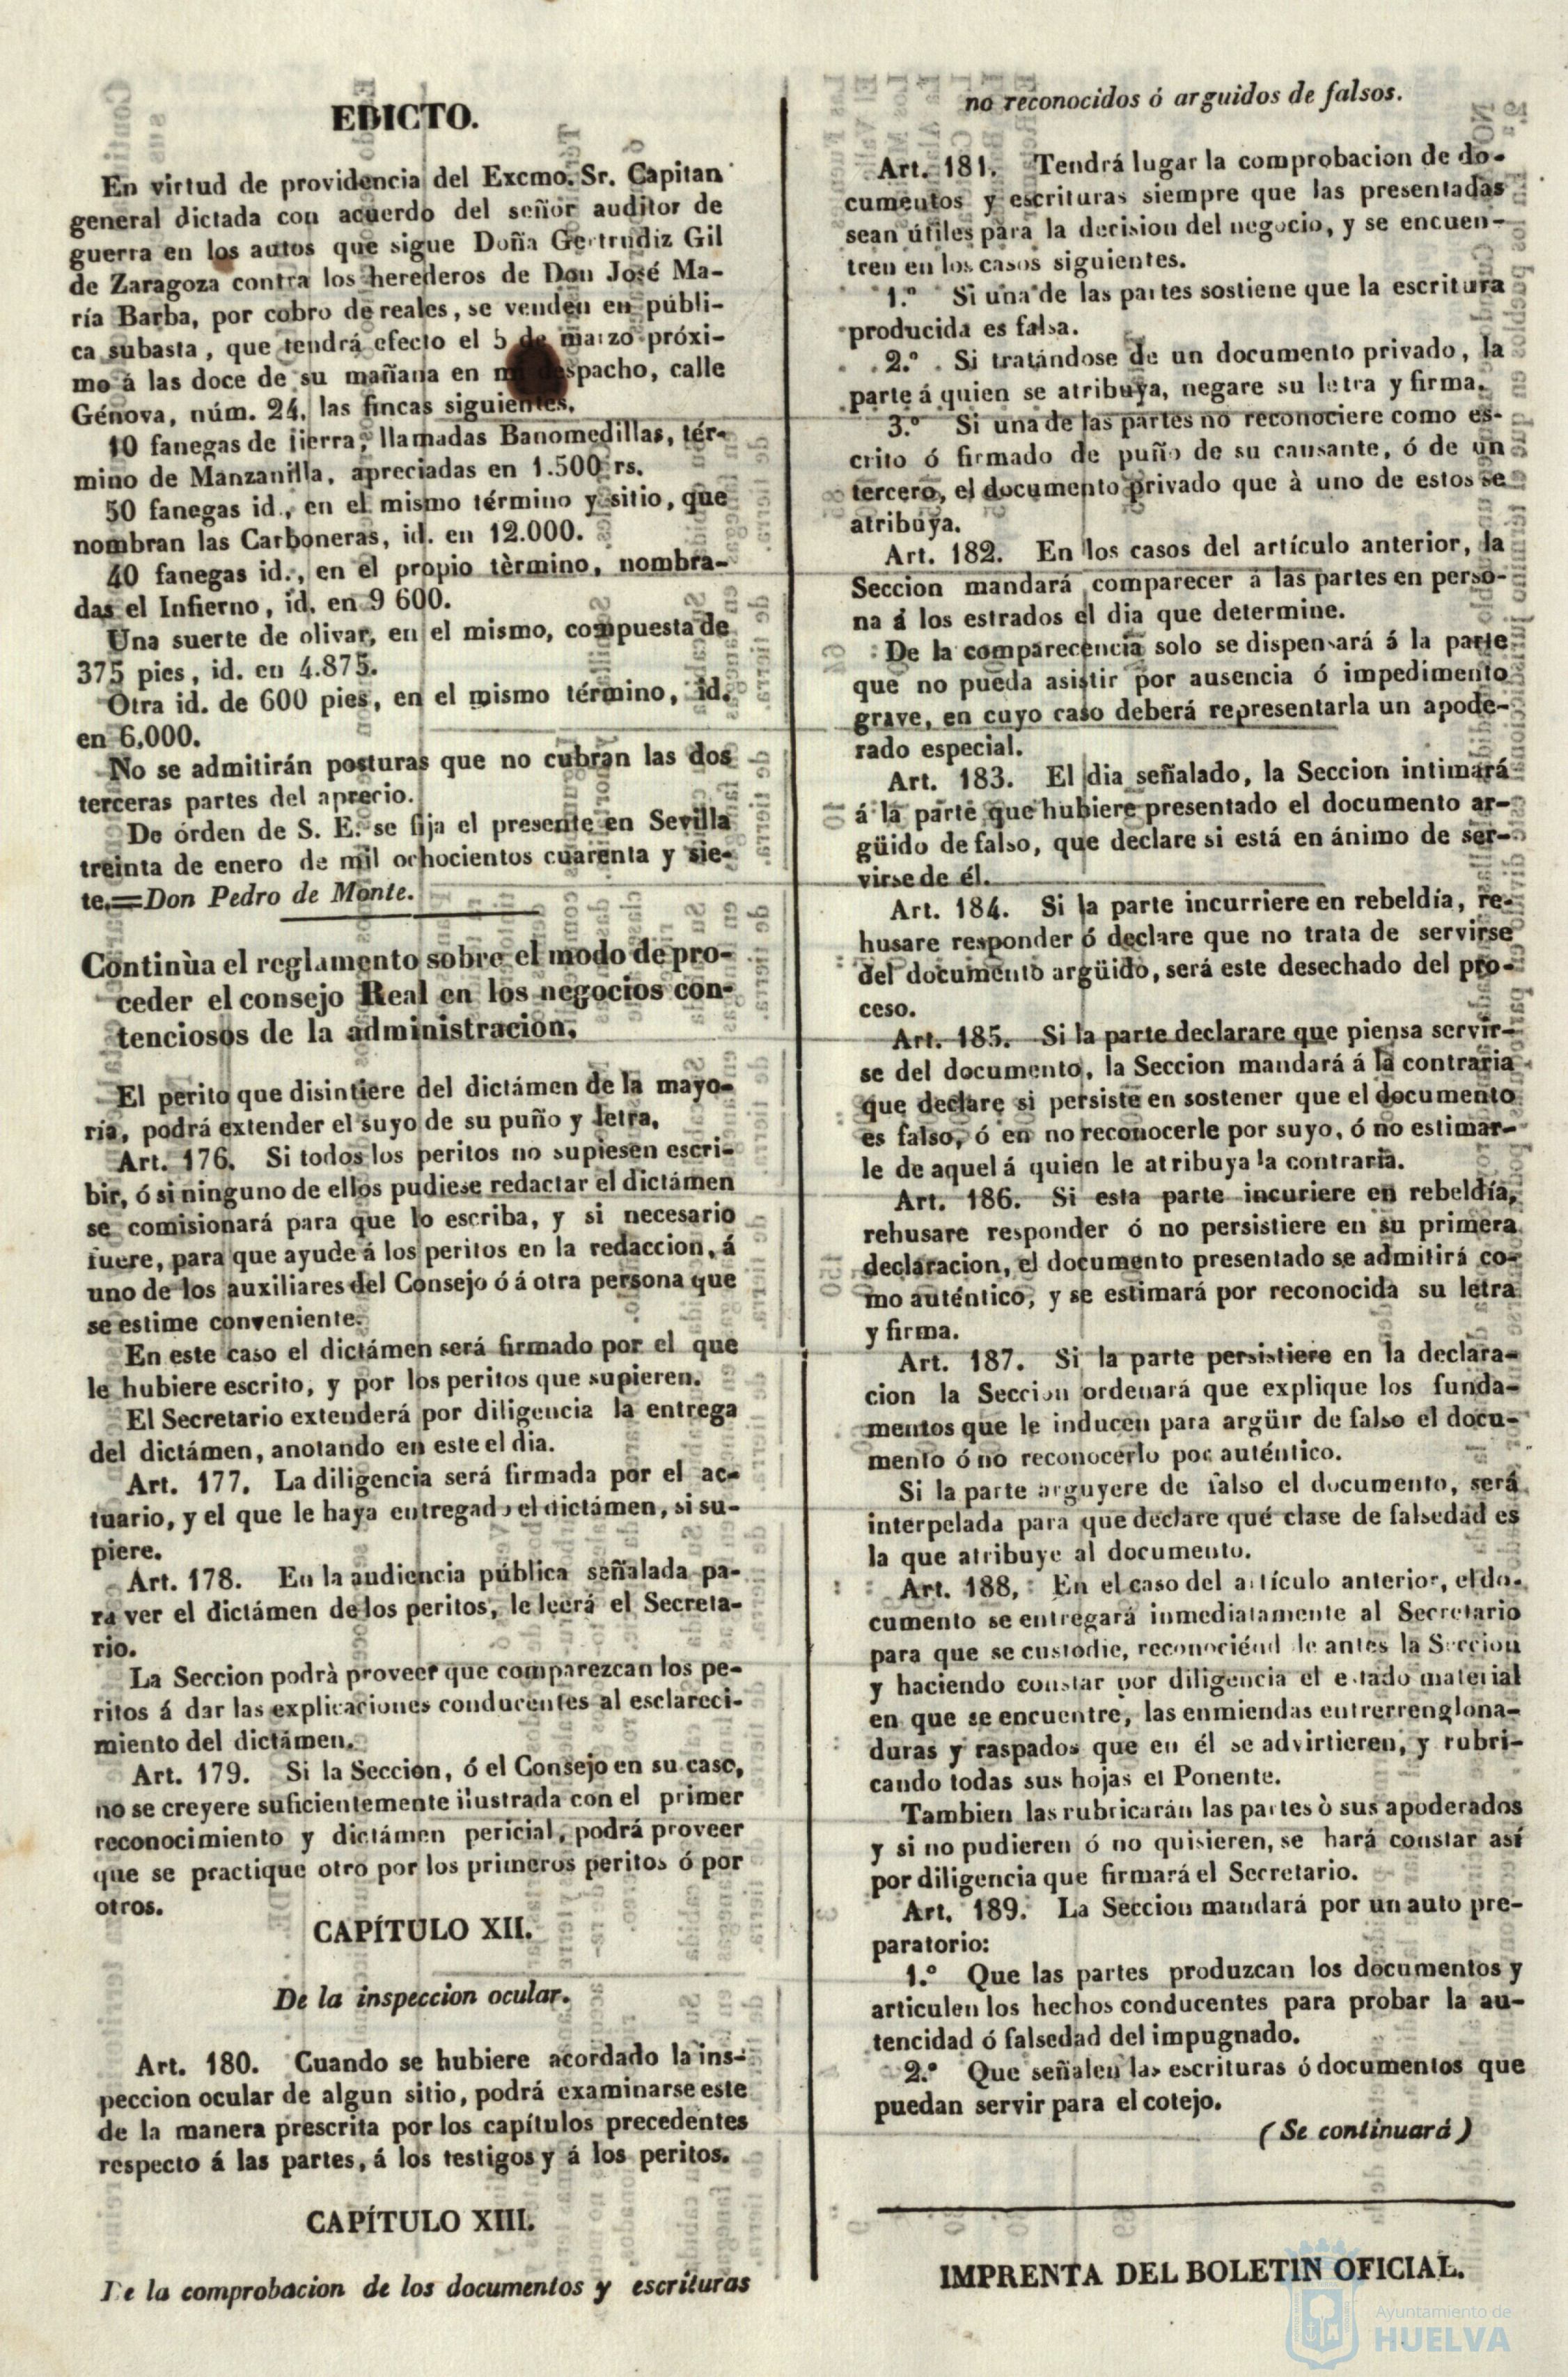 EDICTO.
En virtud de providencia del Excmo. Sr. Capitan
general dictada con acuerdo del señor auditor de
guerra en los autos que sigue Doña Gertrudiz Gil
de Zaragoza contra los herederos de Don José Ma-
ría Barba, por cobro de reales, se venden en públi-
ca subasta, que tendrá efecto el 5 de marzo próxi-
mo á las doce de su mañana en mi despacho, calle
Génova, núm. 24, las fincas siguientes.
10 fanegas de tierra, llamadas Banomedillas, tér-
mino de Manzanilla, apreciadas en 1.500 rs.
50 fanegas id., en el mismo término y sitio, que
nombran las Carboneras, id. en 12.000.
40 fanegas id., en el propio tèrmino, nombra-
das el Infierno, id. en 9 600.
Una suerte de olivar, en el mismo, compuesta de
375 pies, id. en 4.875.
Otra id. de 600 pies, en el mismo término, id.
en 6,000.
No se admitirán posturas que no cubran las dos
terceras partes del aprecio.
De órden de S. E. se fija el presente en Sevilla
treinta de enero de mil ochocientos cuarenta y sie-
te.=Don Pedro de Monte.
Continùa el reglamento sobre el modo de pro-
ceder el consejo Real en los negocios con-
tenciosos de la administracion.
El perito que disintiere del dictámen de la mayo-
ría, podrá extender el suyo de su puño y letra,
Art. 176. Si todos los peritos no supiesen escri-
bir, ó si ninguno de ellos pudiese redactar el dictámen
se comisionará para que lo escriba, y si necesario
fuere, para que ayude á los peritos en la redaccion, á
uno de los auxiliares del Consejo ó á otra persona que
se estime conveniente.
En este caso el dictámen será firmado por el que
le hubiere escrito, y por los peritos que supieren.
El Secretario extenderá por diligencia la entrega
del dictámen, anotando en este el dia.
Art. 177. La diligencia será firmada por el ac-
tuario, y el que le haya entregado el dictámen, si su-
piere.
Art. 178. En la audiencia pública señalada pa-
ra ver el dictámen de los peritos, le leerá el Secreta-
rio.
La Seccion podrà proveer que comparezcan los pe-
ritos á dar las explicaciones conducentes al esclareci-
miento del dictámen.
Art. 179. Si la Seccion, ó el Consejo en su caso,
no se creyere suficientemente ilustrada con el primer
reconocimiento y dictámen pericial, podrá proveer
que se practique otro por los primeros peritos ó por
otros.
CAPÍTULO XII.
De la inspeccion ocular.
Art. 180. Cuando se hubiere acordado la ins-
peccion ocular de algun sitio, podrá examinarse este
de la manera prescrita por los capítulos precedentes
respecto á las partes, á los testigos y á los peritos.
CAPÍTULO XIII.
De la comprobacion de los documentos y escrituras
no reconocidos ó arguidos de falsos.
Art. 181. Tendrá lugar la comprobacion de do-
cumentos y escrituras siempre que las presentadas
sean útiles para la decision del negocio, y se encuen-
tren en los casos siguientes.
1.º Si una de las partes sostiene que la escritura
producida es falsa.
2.º Si tratándose de un documento privado, la
parte á quien se atribuya, negare su letra y firma.
3.º Si una de las partes no reconociere como es-
crito ó firmado de puño de su causante, ó de un
tercero, el documento privado que à uno de estos se
atribuya.
Art. 182. En los casos del artículo anterior, la
Seccion mandará comparecer á las partes en perso-
na á los estrados el dia que determine.
De la comparecencia solo se dispensará á la parte
que no pueda asistir por ausencia ó impedimento
grave, en cuyo caso deberá representarla un apode-
rado especial.
Art. 183. El dia señalado, la Seccion intimará
á la parte que hubiere presentado el documento ar-
güido de falso, que declare si está en ánimo de ser-
virse de él.
Art. 184. Si la parte incurriere en rebeldía, re-
husare responder ó declare que no trata de servirse
del documento argüido, será este desechado del pro-
ceso.
Art. 185. Si la parte declarare que piensa servir-
se del documento, la Seccion mandará á la contraria
que declare si persiste en sostener que el documento
es falso, ó en no reconocerle por suyo, ó no estimar-
le de aquel á quien le atribuya la contraria.
Art. 186. Si esta parte incuriere en rebeldía,
rehusare responder ó no persistiere en su primera
declaracion, el documento presentado se admitirá co-
mo auténtico, y se estimará por reconocida su letra
y firma.
Art. 187. Si la parte persistiere en la declara-
cion la Seccion ordenará que explique los funda-
mentos que le inducen para argüir de falso el docu-
mento ó no reconocerlo por auténtico.
Si la parte arguyere de falso el documento, será
interpelada para que declare qué clase de falsedad es
la que atribuye al documento.
Art. 188, En el caso del artículo anterior, el do-
cumento se entregará inmediatamente al Secretario
para que se custodie, reconociéndole antes la Seccion
y haciendo constar por diligencia el estado material
en que se encuentre, las enmiendas entrerrenglona-
duras y raspados que en él se advirtieren, y rubri-
cando todas sus hojas el Ponente.
Tambien las rubricarán las partes ò sus apoderados
y si no pudieren ó no quisieren, se hará constar así
por diligencia que firmará el Secretario.
Art. 189. La Seccion mandará por un auto pre-
paratorio:
1.º Que las partes produzcan los documentos y
articulen los hechos conducentes para probar la au-
tencidad ó falsedad del impugnado.
2.º Que señalen las escrituras ó documentos que
puedan servir para el cotejo.
(Se continuará)
IMPRENTA DEL BOLETIN OFICIAL.
Ayuntamiento de
HUELVA